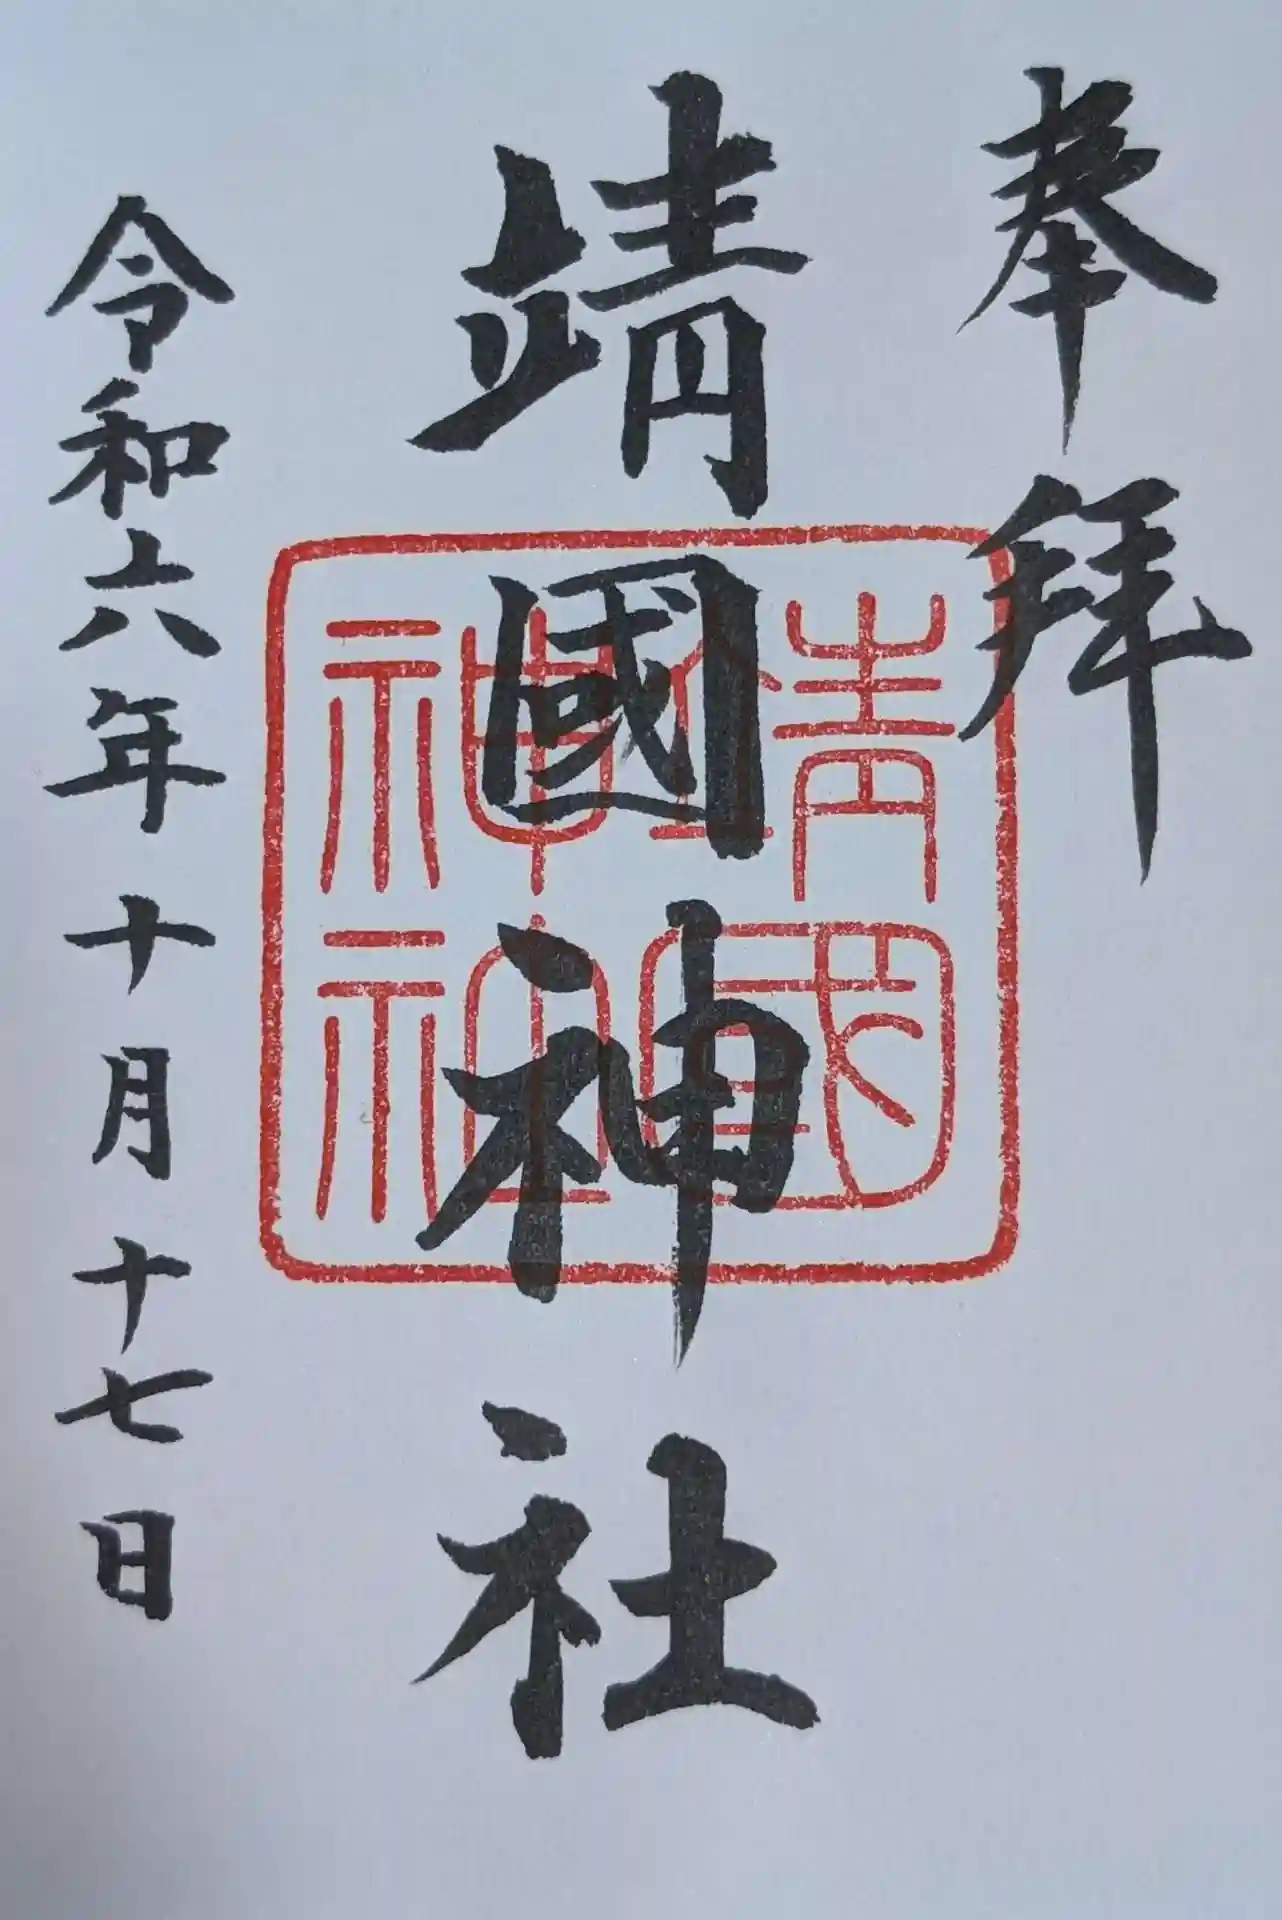 奉拜
靖國神社
靖國神社
令和六年十月十七日